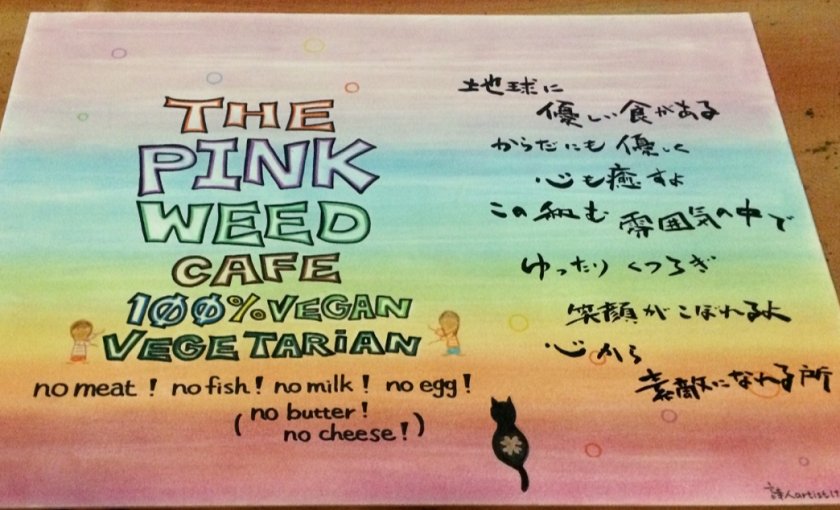 THE
PINK
WEED
CAFE
100% VEGAN
VEGETARiAN
no meat! no fish! no milk! no egg!
(no butter!
no cheese!)
地球に
優しい食がある
からだにも優しく
心も癒すよ
この和む雰囲気の中で
ゆったりくつろぎ
笑顔がこぼれるよ
心から
素敵になれる所
詩人artist